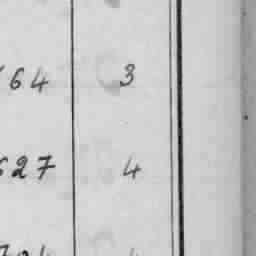 64 3
627 4